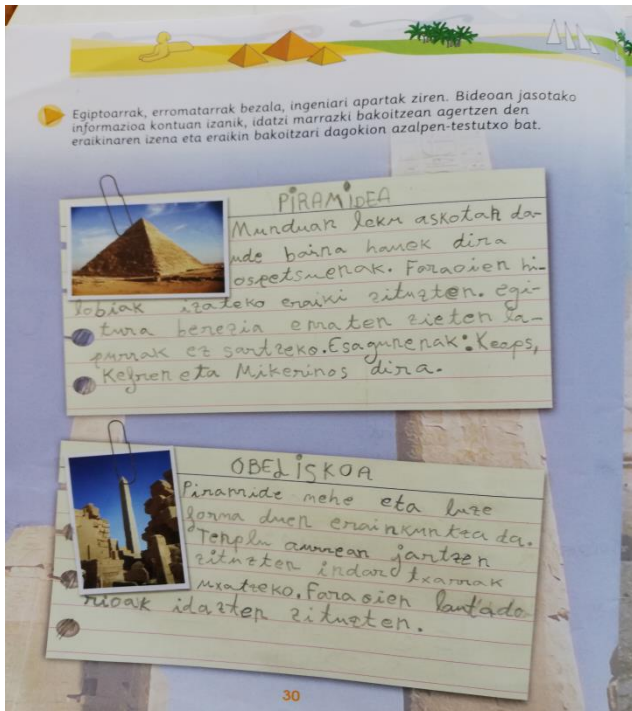 Egiptoarrak, erromatarrak bezala, ingeniari apartak ziren. Bideoan jasotako
informazioa kontuan izanik, idatzi marrazki bakoitzean agertzen den
eraikinaren izena eta eraikin bakoitzari dagokion azalpen-testutxo bat.
PIRAMIDEA
Munduan leku askotan da-
ude baina hauek dira
ospetsuenak. Faraoien hi-
lobiak izateko eraiki zituzten. egi-
tura berezia ematen zieten la-
purrak ez sartzeko. Esagunenak: Keops,
Kefren eta Mikerinos dira.
OBELISKOA
Piramide mehe eta luze
forma duen erainkuntza da.
Tenplu aurrean jartzen
zituzten indar txarrak
uxatzeko. Faraoien
idazten zituzten.
30